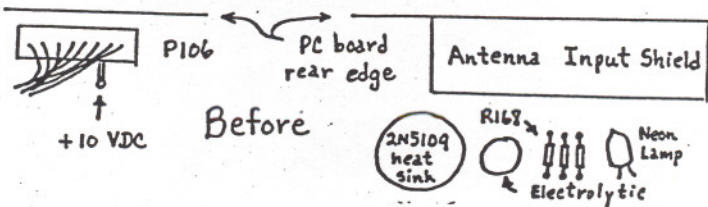 P106
PC board
rear edge
Antenna Input Shield
+10 VDC
Before
2N5109
heat
sink
R168
Neon
Lamp
Electrolytic